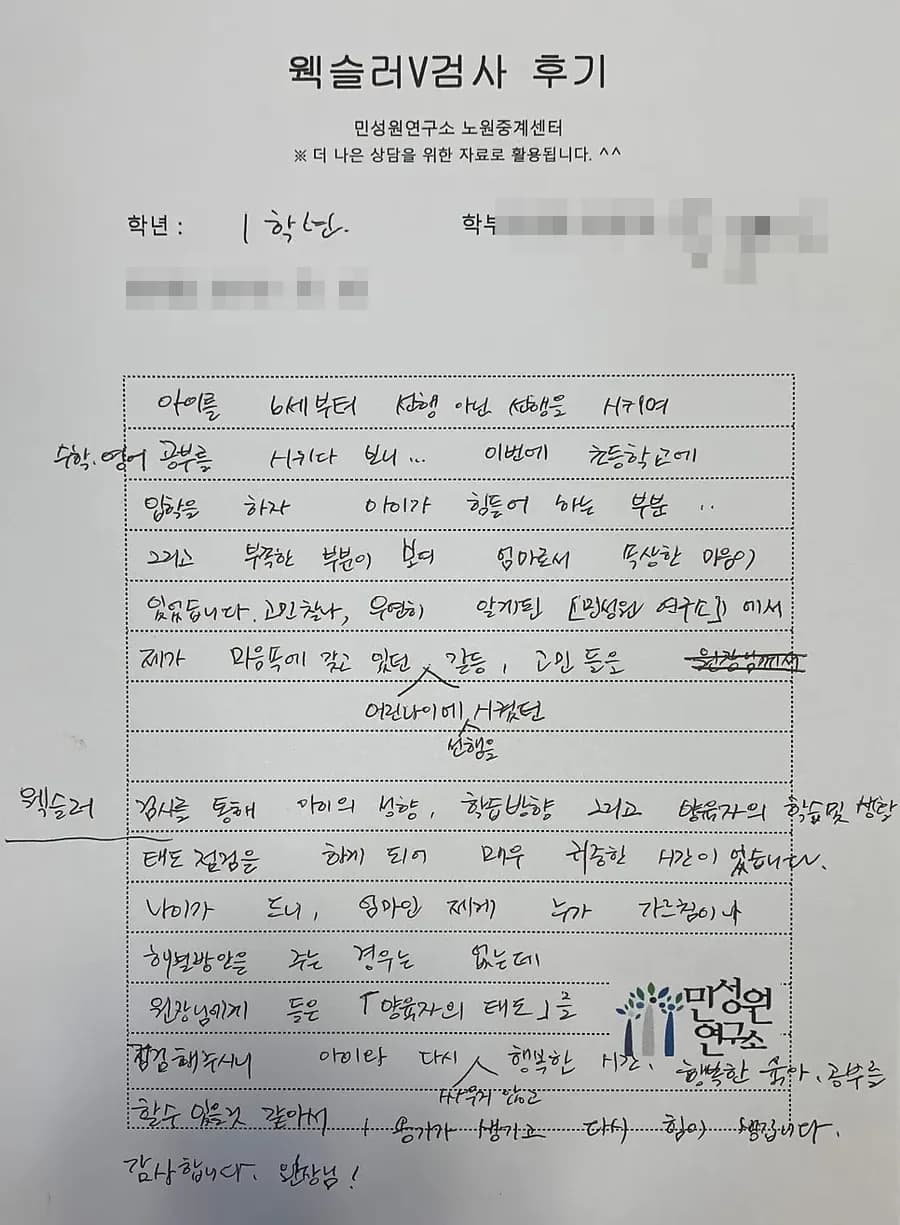 웩슬러V검사 후기
민성원연구소 노원중계센터
※ 더 나은 상담을 위한 자료로 활용됩니다. ^^
학년 : 1학년.
학부
아이를 6세부터 선행 아닌 선행을 시키며
수학.영어 공부를 시키다 보니... 이번에 초등학교에
입학을 하자 아이가 힘들어 하는 부분 ..
그리고 부족한 부분이 보여 엄마로서 속상한 마음이
있었습니다. 고민찰나, 우연히 알게된 [민성원 연구소] 에서
제가 마음속에 갖고 있던 갈등, 고민 들을 원장님께서
어린나이에 시켰던
선행을
웩슬러 검사를 통해 아이의 성향, 학습방향 그리고 양육자의 학습및 생활
태도 점검을 하게 되어 매우 귀중한 시간이 었습니다.
나이가 드니, 엄마인 제게 누가 가르침이나
해결방안을 주는 경우는 없는데
원장님에게 들은 「양육자의 태도」를
민성원
연구소
점검해주시니 아이랑 다시 행복한 시간, 행복한 육아, 공부를
싸우지 않고
할수 있을것 같아서, 용기가 생기고 다시 힘이 생깁니다.
감사합니다. 원장님!